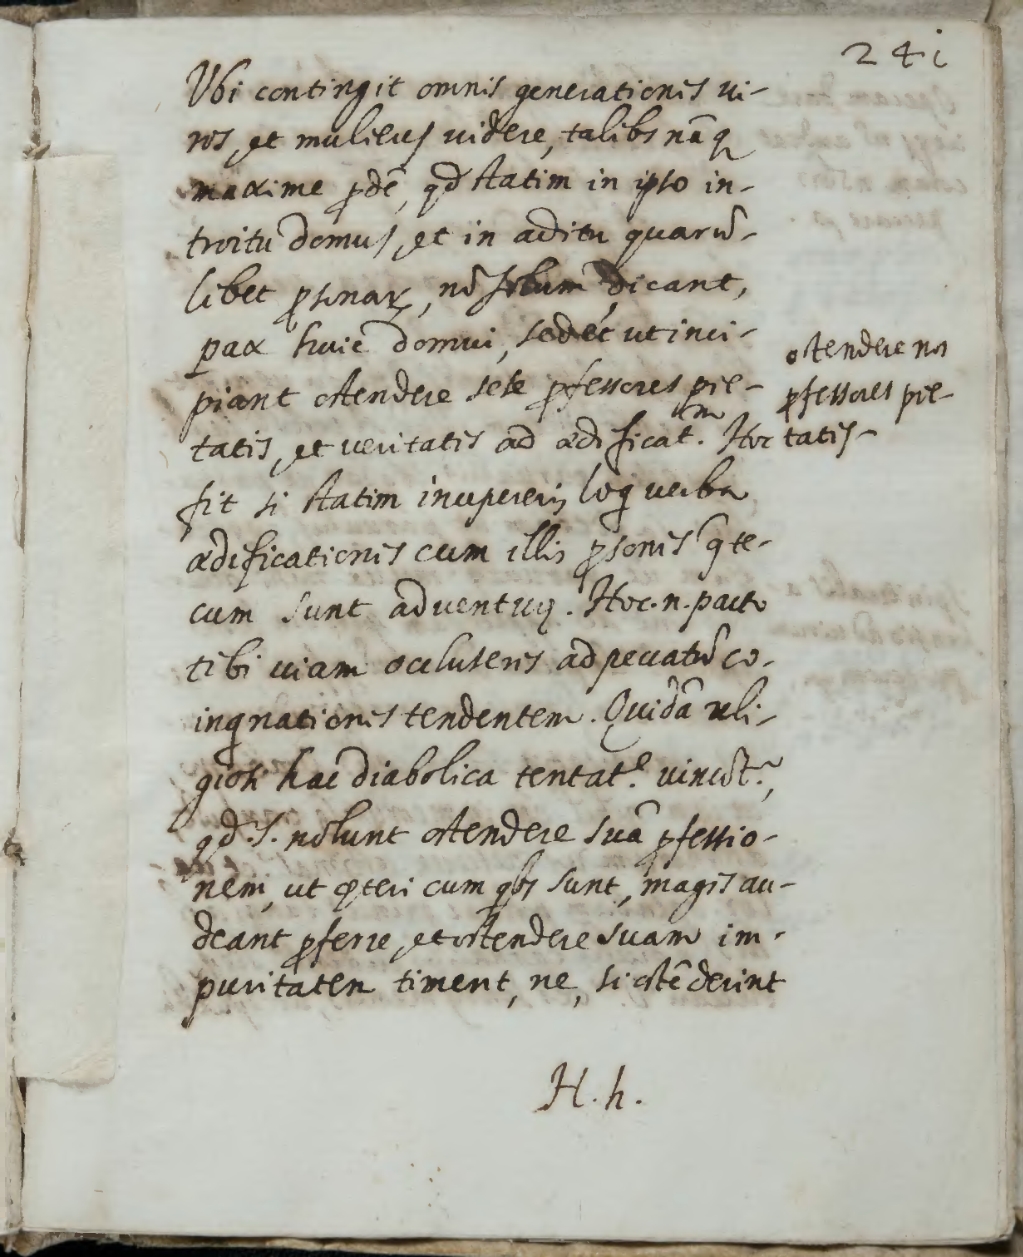 241
Ubi contingit omnis generationis vi-
ros, et mulieres videre, talibs nāq
maxime ꝓdē, qd statim in ipso in-
troitu domus, et in aditu quarū-
libet ꝑsonaꝝ, nō solum dicant,
pax huic domui, sed et ut inci-
piant ostendere sese ꝓfessores pie-
tatis, et veritatis ad ædificat.m Hoc
fit si statim inceperis loq verba
ædificationis cum illis ꝑsonis q te-
cum sunt adventuꝝ. Hoc .n. pacto
tibi viam occluseris ad peccatū co-
inqnationis tendentem. Quidā reli-
giosi hac diabolica tentat.e vincūt.r,
qd .s. nolunt ostendere suā ꝓfessio-
nem, ut cæteri cum qbs sunt, magis au-
deant ꝓferre, et ostendere suam im-
puritatem timent, ne, si ostēderint
ostendere nos
ꝓfessores pie-
tatis-
H.h.